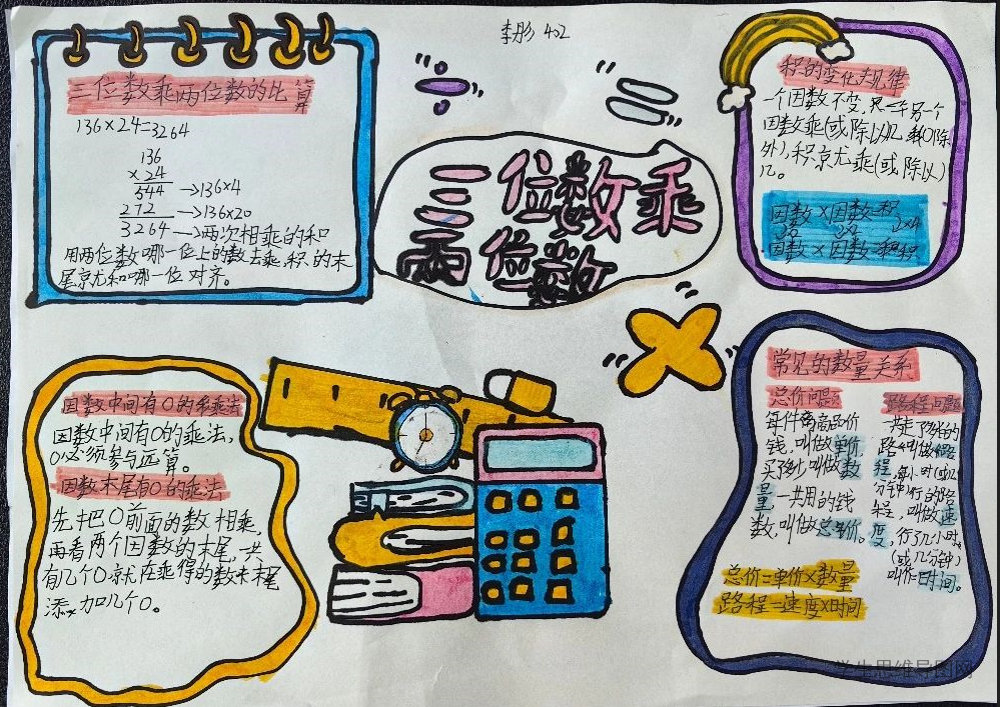 李彤 402
三位数乘两位数
三位数乘两位数的比算
136×24=3264
136
×24
544 →136×4
272 →136×20
3264 →两次相乘的和
用两位数哪一位上的数去乘,积的末
尾就和哪一位对齐。
积的变化规律
一个因数不变,另一个
因数乘(或除以)几(0除
外),积就乘(或除以)
几。
因数×因数=积
因数×因数=积
因数中间有0的乘法
因数中间有0的乘法,
0必须参与运算。
因数末尾有0的乘法
先把0前面的数相乘,
再看两个因数的末尾,共
有几个0.就在乘得的数末尾
添加几个0。
常见的数量关系
总价问题
每件商品价
钱,叫做单价,
买了多少叫做数
量,一共用的钱
数,叫做总价。
路程问题
一共走了多长的
路,叫做路
程,每小时(或几
分钟)行的路
程,叫做速
度,行了几小时,
(或几分钟)
叫作时间。
总价=单价×数量
路程=速度×时间
学生思维导图网